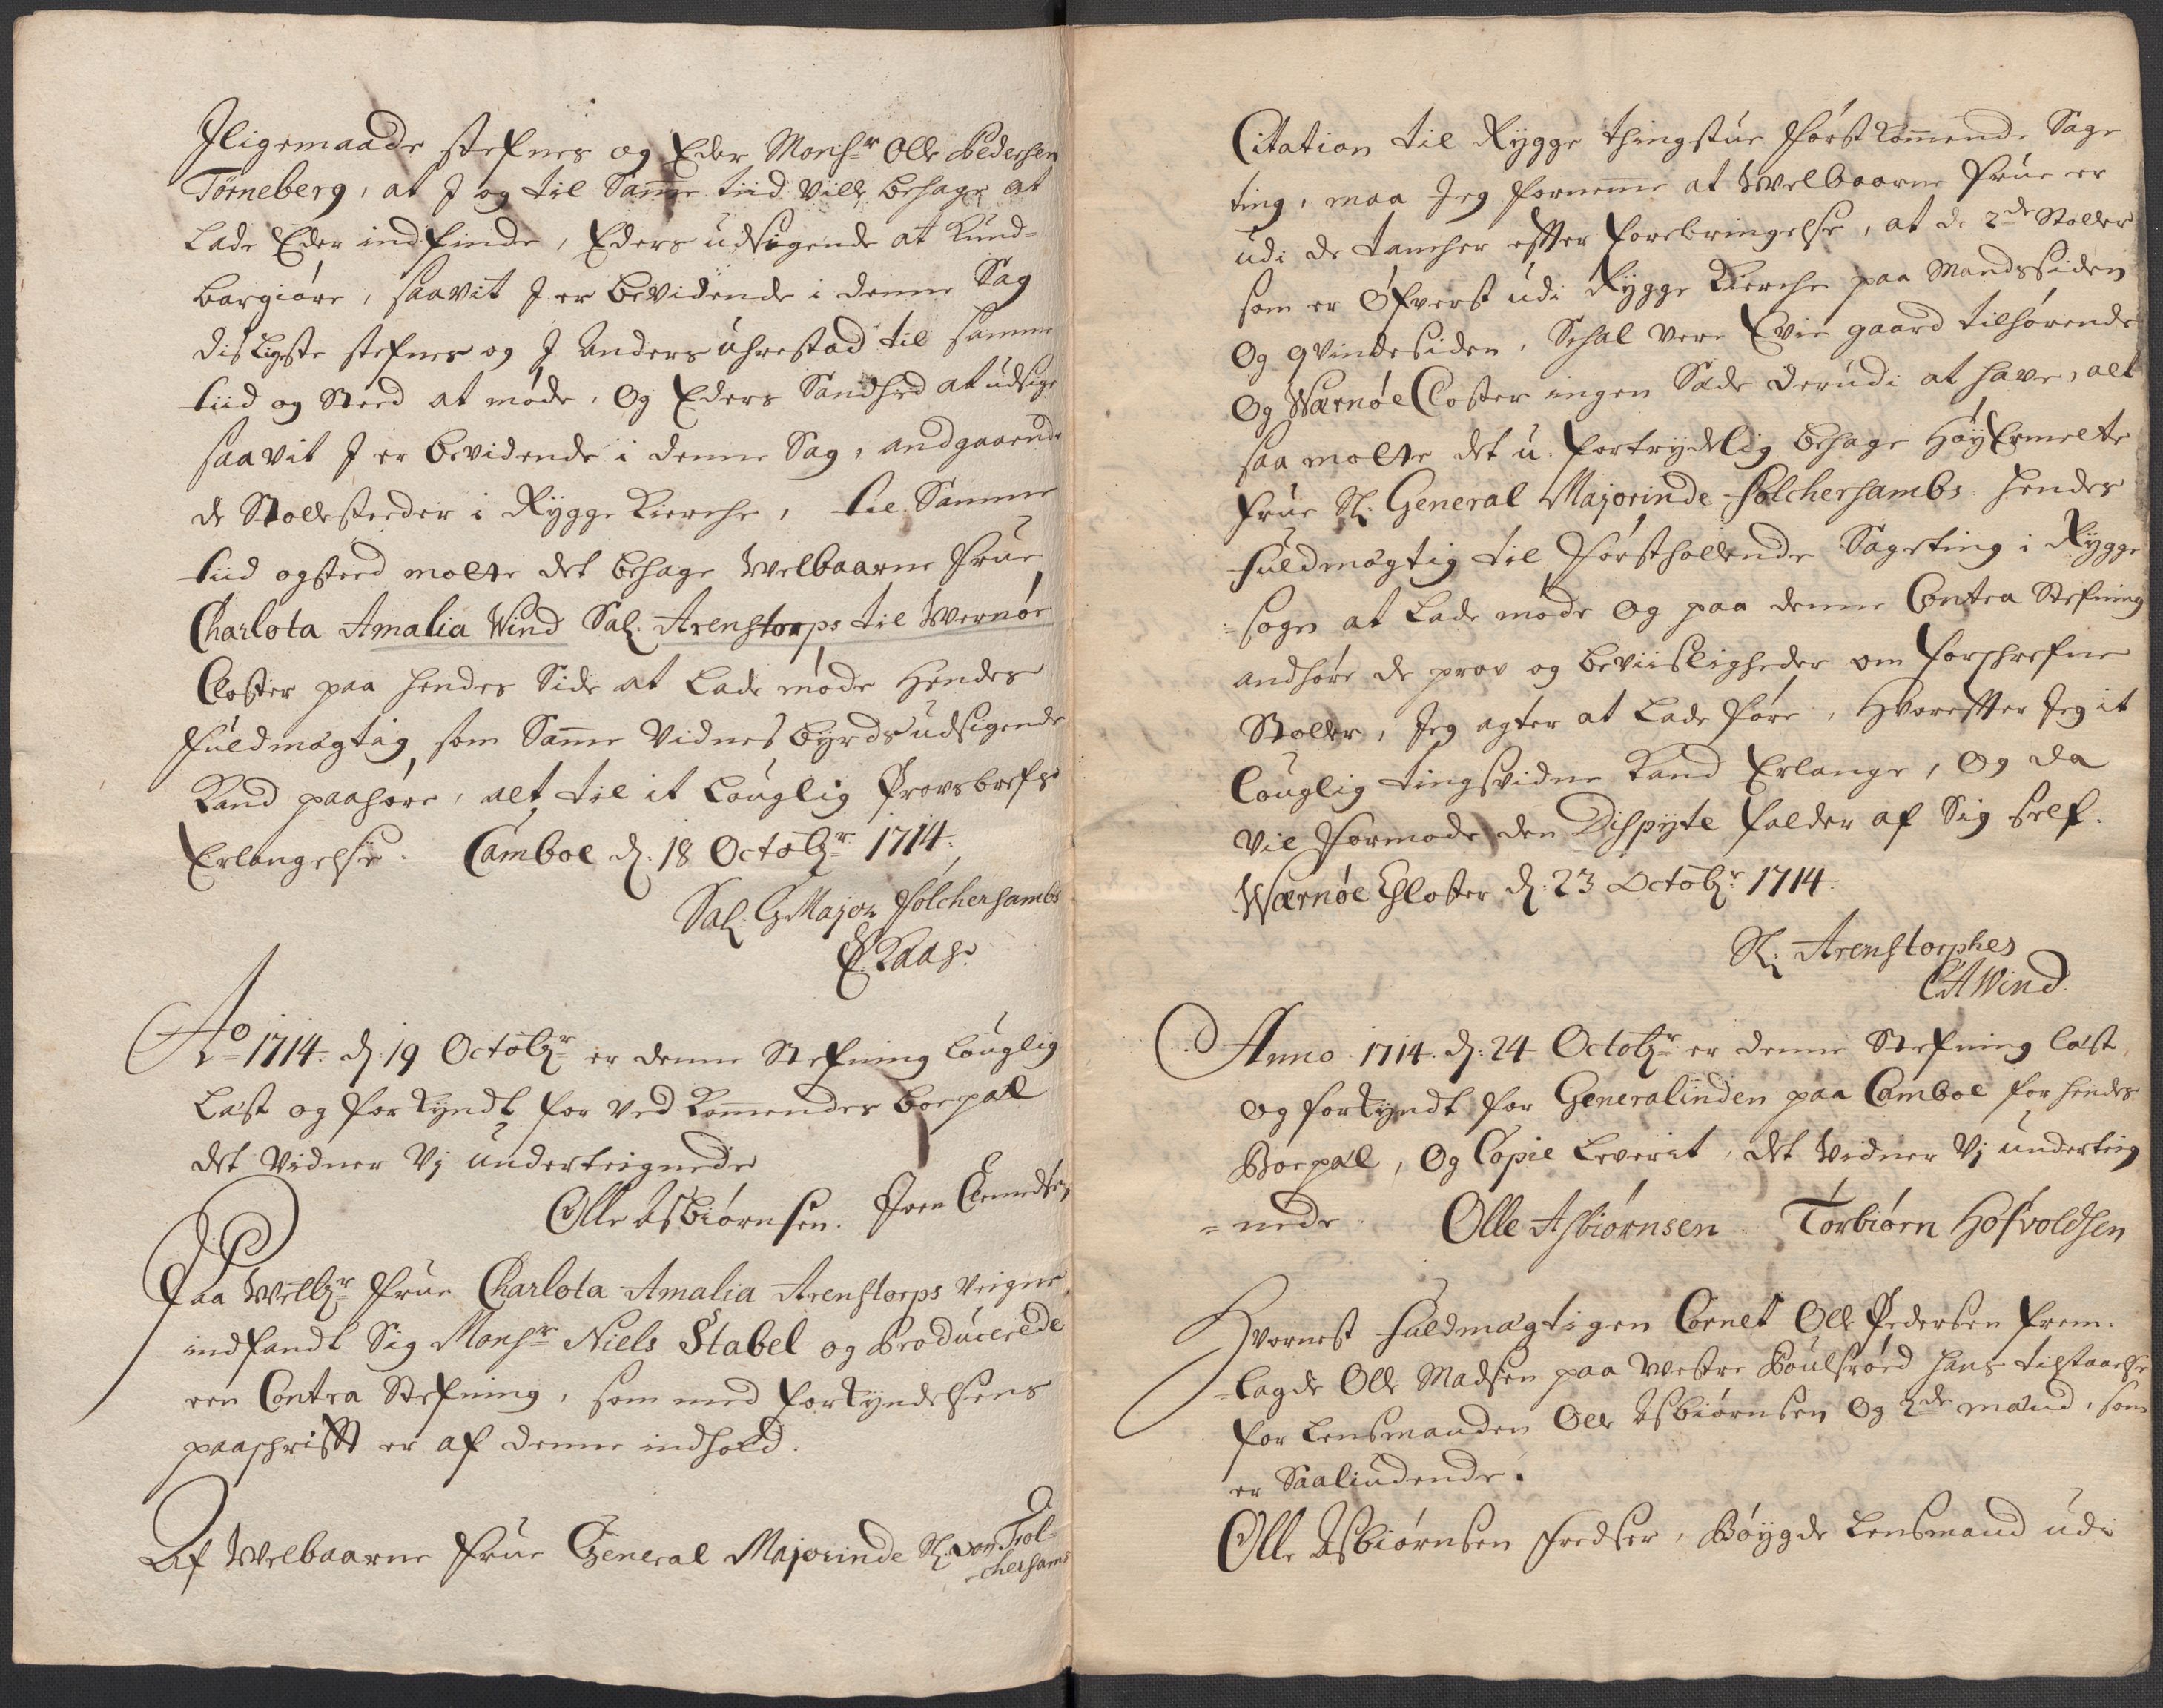 Iligemaade stefnes og Eder Monsr Olle Pedersen
Torneberg, at I og til Samme tiid ville behage at
lade Eder indfinde, Eders udsigende at kund-
bargiøre, saavit I er bevidende i denne Sag
disligeste stefnes og I Anders Uhrestad til samme
tiid og Sted at møde, Og Eders Sandhed at udsige
saavit I er bevidende i denne Sag, andgaaende
de Stollesteder i Rygge Kierche, til Samme
tiid og sted motte det behage Welbaarne Frue
Charlota Amalia Wind Sal. Arenstorps til Wernøe
Closter paa hendes Side at lade møde Hendes
Fuldmægtig, som Samme Vidnesbyrds udsigende
Kand paahøre, alt til it louglig Provsbrefs
Erlangelse. Camboe d. 18 Octobr 1714.
Sal. G Major Folchersambs
E. Kaas.
Ao 1714. d. 19 Octobr er denne Stefning louglig
læst og forkyndt for vedkommendes boepæl
det vidner Vj underteignede
Olle Asbiørnsen. Iven Clemedsen
Paa Welbr Frue Charlota Amalia Arenstorps veigne
indfandt Sig Monsr Niels Stabel og Producerede
een Contra Stefning, som med forkyndelsens
paaschrifft er af denne indhold.
Af Welbaarne Frue General Majorinde Sl. von Fol-
-chersams
Citation til Rygge thingstue først kommende Sage
ting, maa Jeg fornemme at Welbaarne Frue er
udi de tancher effter forebringelse, at de 2de Stoller
som er Øfverst udi Rygge Kierche paa Mandssiden
Og qvindesiden, Schal vere Evie gaard tilhørende
Og Wærnøe Closter ingen Sæde derudi at have, alt
saa motte det u-fortrydelig behage HøyErmelte
Frue Sl. General Majorinde Folchersambs hendes
Fuldmægtig til Førstholdende Sageting i Rygge
=sogn at lade møde Og paa denne Contra Stefning
andhøre de prov og beviisligheder om forschrefne
Stoller, Jeg agter at lade føre, Hvoreffter Jeg it
louglig tingsvidne kand Erlange, Og da
vil Formode den Dispyte falder af Sig self.
Wærnøe Closter d. 23 Octobr 1714.
Sl. Arenstorphes
CAWind.
Anno 1714. d. 24 Octobr er denne Stefning læst,
og forkyndt for Generalinden paa Camboe for hendes
Boepæl, Og Copie leverit, det vidner Vj underteig
=nede. Olle Asbiørnsen Torbiørn Hofvoldsen
Hvornest Fuldmægtigen Cornet Olle Pedersen frem-
-lagde Olle Madsen paa Westre Boulsrød hans tilstaaelse
for Lensmanden Olle Asbiørnsen Og 2de mænd, som
er Saaliudende.
Olle Asbiørnsen Fredser, Bøygde Lensmand udi